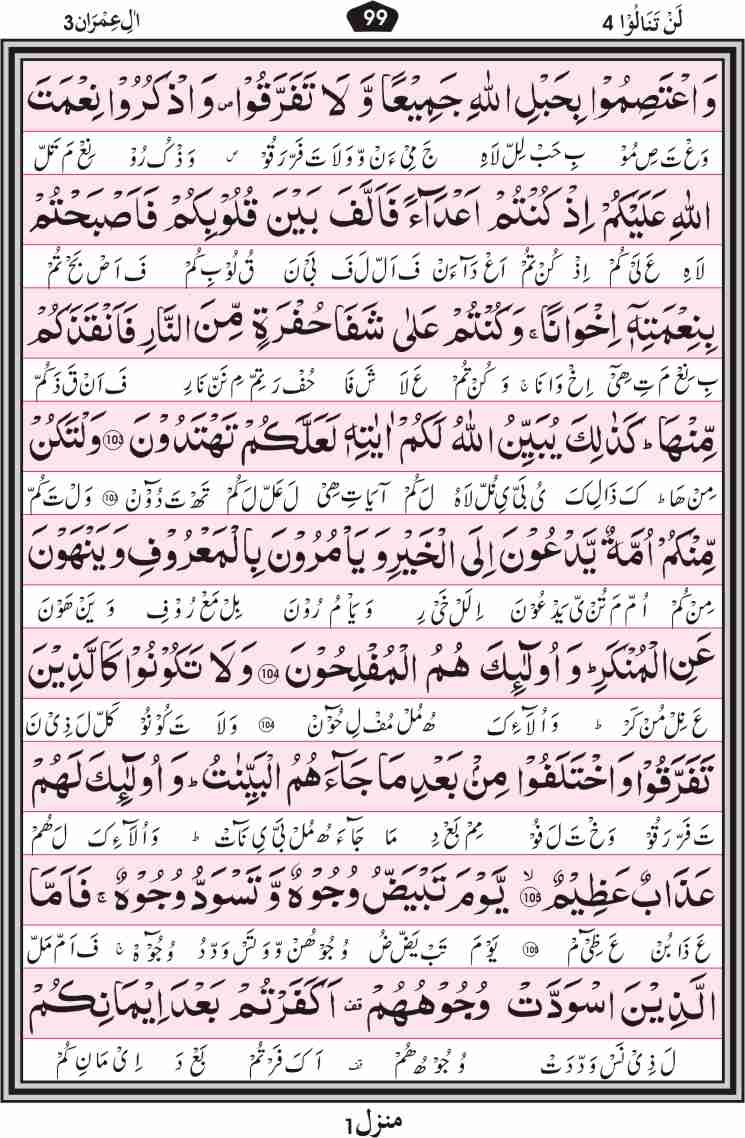 لَنْ تَنَالُوْا 4
99
اٰلِ عِمْرَان3
وَ اعْتَصِمُوْا بِحَبْلِ اللّٰهِ جَمِيْعًا وَّ لَا تَفَرَّقُوْا۪ وَ اذْكُرُوْا نِعْمَتَ
وَعْ تَ صِ مُوْ بِ حَبْ لِلْ لَاہِ جَ مِیْ ءَ نْ وَّ وَ لَا تَ فَرْ رَ قُوْ ۪ وَ ذْ کُ رُوْ نِعْ مَ تَلْ
اللّٰهِ عَلَيْكُمْ اِذْ كُنْتُمْ اَعْدَآءً فَاَلَّفَ بَيْنَ قُلُوْبِكُمْ فَاَصْبَحْتُمْ
لَاہِ عَ لَیْ کُمْ اِذْ کُنْ تُمْ اَعْ دَآ ءَنْ فَ اَلْ لَ فَ بَیْ نَ قُ لُوْ بِ کُمْ فَ اَصْ بَحْ تُمْ
بِنِعْمَتِهٖۤ اِخْوَانًا ۚ وَ كُنْتُمْ عَلٰى شَفَا حُفْرَةٍ مِّنَ النَّارِ فَاَنْقَذَكُمْ
بِ نِعْ مَ تِ ھِیْٓ اِخْ وَا نَا ۚ وَ کُنْ تُمْ عَ لَا شَ فَا حُفْ رَ تِمْ مِ نَنْ نَارِ فَ اَنْ قَ ذَ کُمْ
مِّنْهَا ؕ كَذٰلِكَ يُبَيِّنُ اللّٰهُ لَكُمْ اٰيٰتِهٖ لَعَلَّكُمْ تَهْتَدُوْنَ 103 وَلْتَكُنْ
مِنْ ھَا ؕ کَ ذَالِ کَ یُ بَیْ یِ نُلْ لَاہُ لَ کُمْ آیَاتِ ھِیْ لَ عَلْ لَ کُمْ تَھْ تَ دُوْنْ 103 وَلْ تَ کُمْ
مِّنْكُمْ اُمَّةٌ يَّدْعُوْنَ اِلَى الْخَيْرِ وَ يَاْمُرُوْنَ بِالْمَعْرُوْفِ وَ يَنْهَوْنَ
مِنْ کُمْ اُمْ مَ تُنْ یْ یَدْ عُوْنَ اِ لَلْ خَیْ رِ وَ یَاْ مُ رُوْنَ بِلْ مَعْ رُوْفِ وَ یَنْ ھَوْنَ
عَنِ الْمُنْكَرِ ؕ وَ اُولٰٓئِكَ هُمُ الْمُفْلِحُوْنَ 104 وَ لَا تَكُوْنُوْا كَالَّذِيْنَ
عَ نِلْ مُنْ کَرْ ؕ وَ اُ لَآءِ کَ ھُ مُلْ مُفْ لِ حُوْنْ 104 وَ لَا تَ کُوْ نُوْ کَلْ لَ ذِیْ نَ
تَفَرَّقُوْا وَ اخْتَلَفُوْا مِنْۢ بَعْدِ مَا جَآءَهُمُ الْبَيِّنٰتُ ؕ وَ اُولٰٓئِكَ لَهُمْ
تَ فَرْ رَ قُوْ وَخْ تَ لَ فُوْ مِمْ بَعْ دِ مَا جَآءَ ھُ مُلْ بَیْ یِ نَاتْ ؕ وَ اُ لَآءِ کَ لَ ھُمْ
عَذَابٌ عَظِيْمٌ ۙ 105 يَّوْمَ تَبْيَضُّ وُجُوْهٌ وَّ تَسْوَدُّ وُجُوْهٌ ۚ فَاَمَّا
عَ ذَا بُنْ عَ ظِیْ مْ 105 یَوْمَ تَبْ یَضْ ضُ وُ جُوْ ھُنْ وَّ وَ تَسْ وَدْ دُ وُ جُوْہْ ۚ فَ اَمْ مَلْ
الَّذِيْنَ اسْوَدَّتْ وُجُوْهُهُمْ ۫ اَكَفَرْتُمْ بَعْدَ اِيْمَانِكُمْ
لَ ذِیْ نَسْ وَدْ دَ تْ وُ جُوْ ھُ ھُمْ اَ کَ فَرْ تُمْ بَعْ دَ اِیْ مَانِ کُمْ
منزل 1